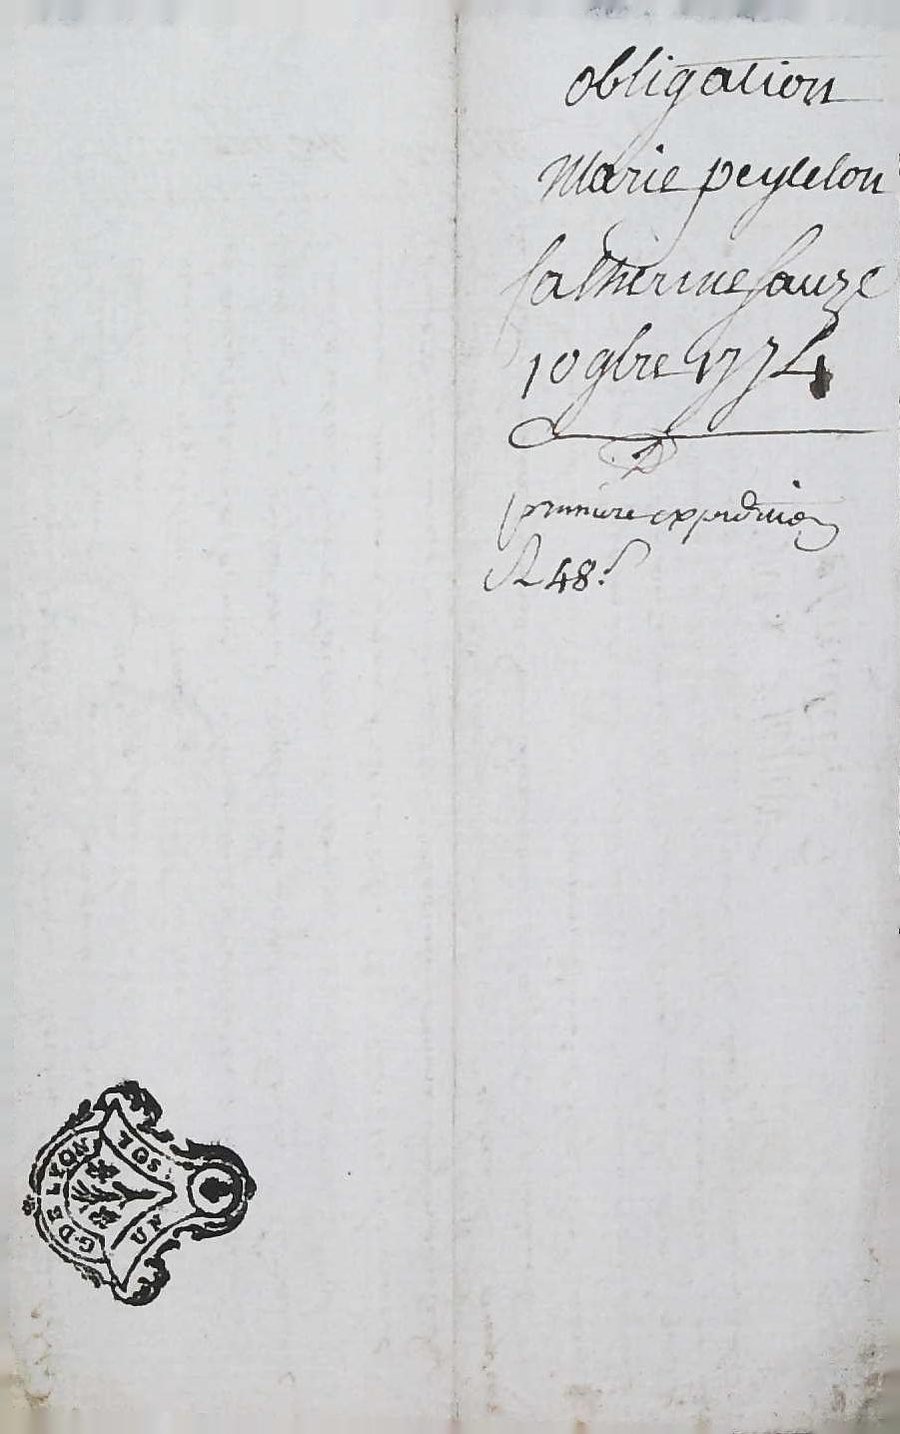 obligation
Marie peytelon
Catherine sauze
10 9bre 1774
premiere expedition
R 48 s
G. DE LYON
UN
SOS.